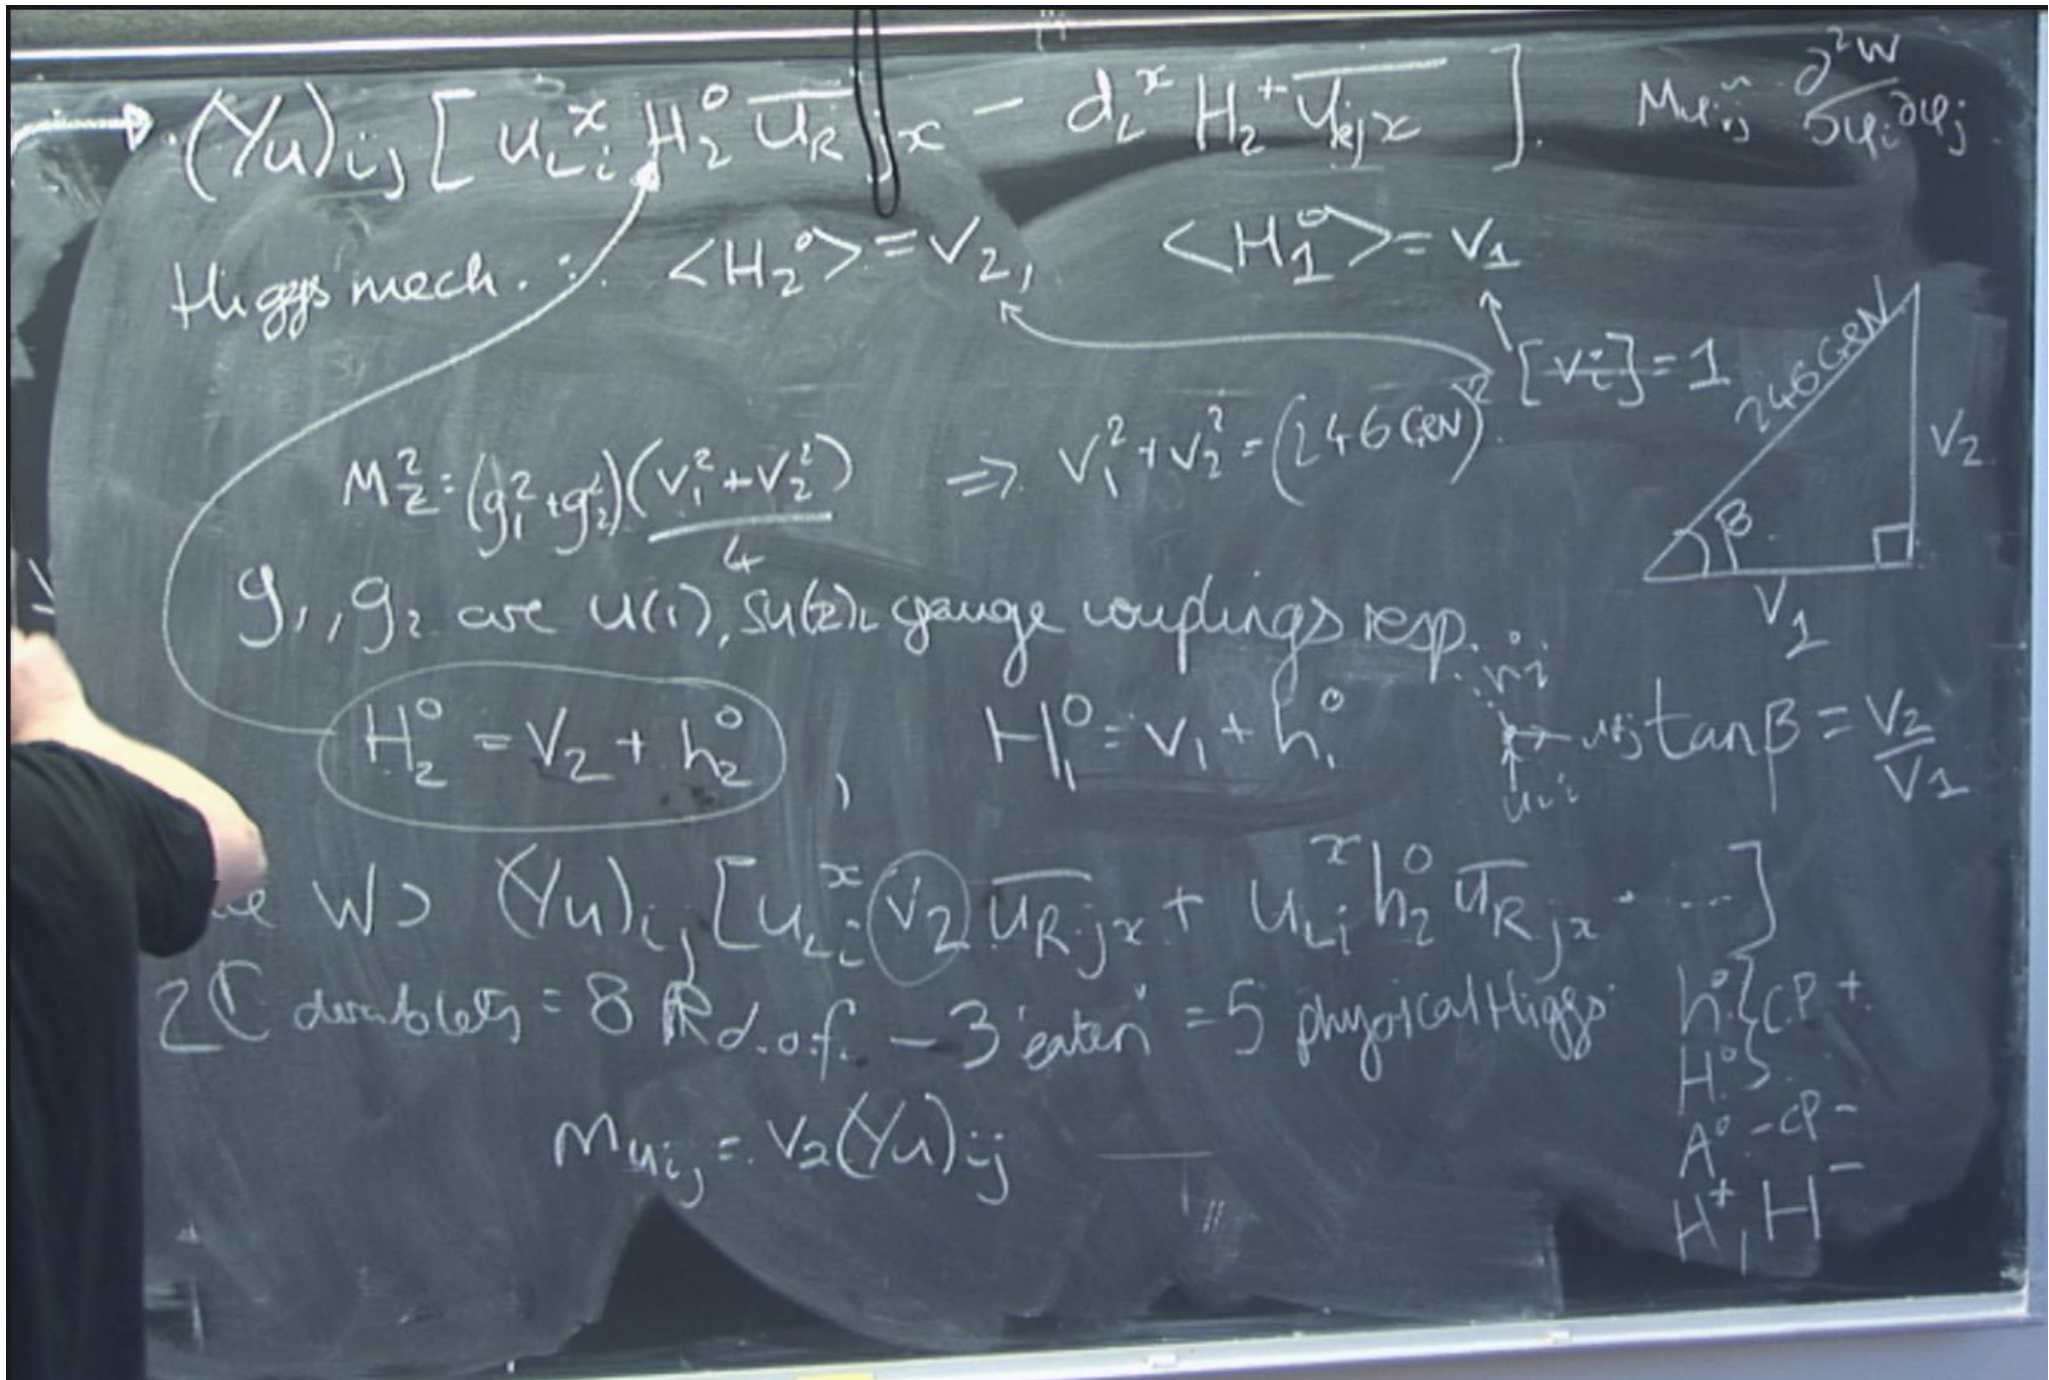 (Yu)ij [ uLi^x H2^0 \overline{uR} jx − dL^x H2^+ \overline{uRjx} ].
Mφij ~ ∂²W / ∂φi∂φj
Higgs mech. : <H2^0> = V2, <H1^0> = V1
[vi] = 1
MZ^2 = (g1^2 + g2^2)(V1^2 + V2^2)/4 ⇒ V1^2 + V2^2 = (246 GeV)^2.
246 GeV
V2
β
V1
g1, g2 are U(1), SU(2)L gauge couplings resp.
H2^0 = V2 + h2^0 , H1^0 = V1 + h1^0
tanβ = V2/V1
W ⊃ (Yu)ij [uLi^x V2 \overline{uR}jx + uLi^x h2^0 \overline{uR}jx - ....]
2ℂ doublets = 8 ℝ d.o.f. − 3 'eaten' = 5 physical Higgs
h^0 } CP +
H^0 }
A^0 - CP -
H^+, H^-
muij = V2(Yu)ij